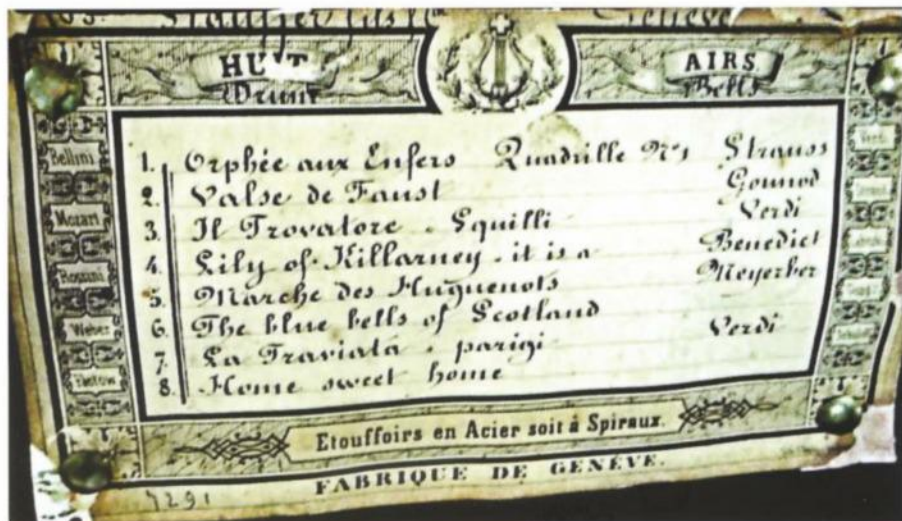 Stauffer fils & Cie Genève
HUIT AIRS
Drum Bells
Bellini
Mozart
Rossini
Weber
Flotow
Verdi
1. Orphée aux Enfers Quadrille No 1 Strauss
2. Valse de Faust Gounod
3. Il Trovatore . Squilli Verdi
4. Lily of Killarney . it is a Benedict
5. Marche des Huguenots Meyerber
6. The blue bells of Scotland
7. La Traviata . parigi Verdi
8. Home sweet home
Etouffoirs en Acier soit à Spiraux.
FABRIQUE DE GENÉVE.
7291